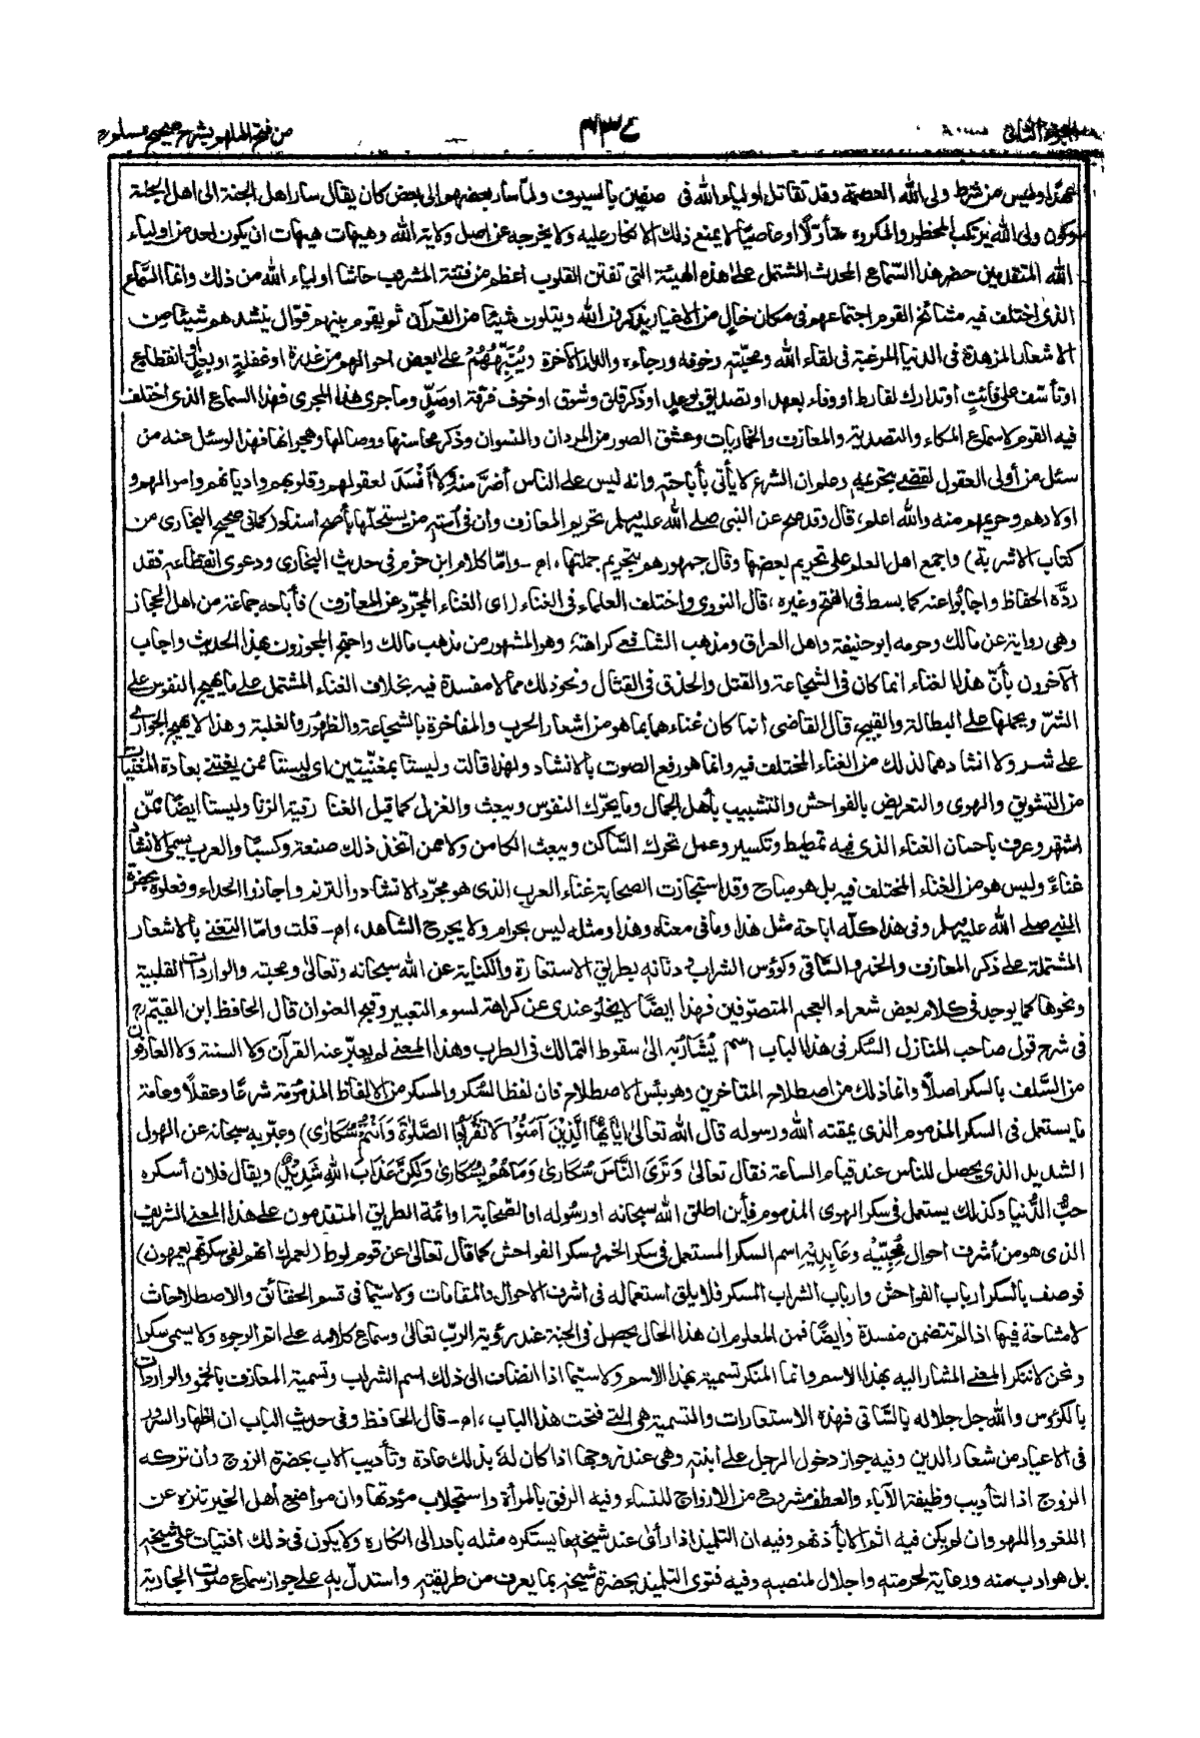 الجزء الثاني ٤٣٤ من فتح الملهم بشرح صحيح مسلم
بهذا وليس من شرط ولى الله العصمة وقد تقاتل اولياء الله فى صفين بالسيوف ولما سار بعضهم الى بعض كان يقال سار اهل الجنة الى اهل الجنة
وكون ولى الله يرتكب المحظور والمكروه متأولاً او عاصيًا لا يمنع ذلك الانكار عليه ولا يخرجه عن اصل ولاية الله وهيهات هيهات ان يكون احد من اولياء
الله المتقدمين حضر هذا السّماع المحدث المشتمل على هذه الهيئة التى تفتن القلوب اعظم من فتنة المشرب حاشا اولياء الله من ذلك وانما السَّماع
الذى اختلف فيه مشائخ القوم اجتماعهم فى مكان خالٍ من الاغيار يذكرون الله ويتلون شيئًا من القرآن ثم يقوم بينهم قوّال ينشدهم شيئًا من
الاشعار المزهدة فى الدنيا المرغبة فى لقاء الله ومحبّته وخوفه ورجاءه والدار الآخرة وينبّههم على بعض احوالهم من غدرة او غفلةٍ او بعدٍ او انقطاعٍ
او تأسّف على فائتٍ او تدارك لفارط او وفاء بعهد او تصديق بوعدٍ او ذكر قلق وشوق او خوف فرقة او صدٍّ وما جرى هذا المجرى فهذا السماع الذى اختلف
فيه القوم لا سماع المكاء والتصدية والمعازف والخماريات وعشق الصور من المردان والنسوان وذكر محاسنها ووصالها وهجرانها فهذا لو سئل عنه من
سئل من أولى العقول لقضى بتحريمه وعلم ان الشرع لا يأتى بأباحته وانه ليس على الناس أضرّ منه ولا أفسد لعقولهم وقلوبهم واديانهم واموالهم و
اولادهم وحريمهم منه والله اعلم، قال وقد صح عن النبى صلى الله عليه وسلم تحريم المعازف وأن فى أمته من يستحلها بأصح اسناد (كما فى صحيح البخارى من
كتاب الاشربة) واجمع اهل العلم على تحريم بعضها وقال جمهورهم بتحريم جملتها، اﻫ - وامّا كلام ابن حزم فى حديث البخارى ودعوى انقطاعه فقد
ردّه الحفاظ واجابوا عنه كما بسط فى الفتح وغيره، قال النووى واختلف العلماء فى الغناء (اى الغناء المجرّد عن المعازف) فأباحه جماعة من اهل الحجاز
وهى رواية عن مالك وحرمه ابو حنيفة واهل العراق ومذهب الشافعى كراهته وهو المشهور من مذهب مالك واحتج المجوزون بهذا الحديث واجاب
الآخرون بأنّ هذا الغناء انما كان فى الشجاعة والقتل والحذق فى القتال ونحو ذلك مما لا مفسدة فيه بخلاف الغناء المشتمل على ما يهيج النفوس على
الشرّ ويحملها على البطالة والقبيح، قال القاضى انما كان غناءهما بما هو من اشعار الحرب والمفاخرة بالشجاعة والظهور والغلبة وهذا لا يهيج الجوارى
على شر ولا انشادهما لذلك من الغناء المختلف فيه وانما هو رفع الصوت بالانشاد ولهذا قالت وليستا بمغنيتين اى ليستا ممن يتغنى بعادة المغنيات
من التشويق والهوى والتعريض بالفواحش والتشبيب بأهل الجمال وما يحرّك النفوس ويبعث والغزل كما قيل الغنا رقية الزنا وليستا ايضًا ممّن
اشتهر وعرف باحسان الغناء الذى فيه تمطيط وتكسير وعمل تحرك السَّاكن ويبعث الكامن ولا ممن اتخذ ذلك صنعة وكسبًا والعرب يسمى الانشاد
غناءً وليس هو من الغناء المختلف فيه بل هو مباح وقد استجازت الصحابة غناء العرب الذى هو مجرّد الانشاد والترنم واجازوا الحداء وفعلوه بحضرة
النبى صلى الله عليه وسلم وفى هذا كلّه اباحة مثل هذا وما فى معناه وهذا ومثله ليس بحرام ولا يجرح الشاهد، اﻫ - قلت وامّا التغنى بالاشعار
المشتملة على ذكر المعازف والخمر والسّاقى وكؤس الشراب ودنانه بطريق الاستعارة والكناية عن الله سبحانه وتعالى ومحبته والواردات القلبية
ونحوها كما يوجد فى كلام بعض شعراء العجم المتصوّفين فهذا ايضًا لا يخلو عندى عن كراهة لسوء التعبير وقبح العنوان قال الحافظ ابن القيّم رح
فى شرح قول صاحب المنازل السُكر فى هذا الباب اسم يُشار به الى سقوط التمالك فى الطرب وهذا المعنى لم يعبّر عنه القرآن ولا السنة ولا العارفون
من السَّلف بالسكر اصلاً وانما ذلك من اصطلاح المتأخرين وهو بئس الاصطلاح فان لفظ السُّكر والمسكر من الالفاظ المذمومة شرعًا وعقلاً وعامة
ما يستعمل فى السكر المذموم الذى يمقته الله ورسوله قال الله تعالى (يَا أَيُّهَا الَّذِينَ آمَنُوا لَا تَقْرَبُوا الصَّلٰوةَ وَأَنْتُمْ سُكَارٰى) وعبّر به سبحانه عن الهول
الشديد الذى يحصل للناس عند قيام الساعة فقال تعالى وَتَرَى النَّاسَ سُكَارٰى وَمَا هُمْ بِسُكَارٰى وَلٰكِنَّ عَذَابَ اللهِ شَدِيْدٌ) ويقال فلان أسكره
حبُّ الدُّنيا وكذلك يستعمل فى سكر الهوى المذموم فأين اطلق الله سبحانه او رسوله او الصّحابة او ائمة الطريق المتقدمون على هذا المعنى الشريف
الذى هو من أشرف احوال مُحِبّيْهِ وعَابِدِيْهِ اسم السكر المستعمل فى سكر الخمر وسكر الفواحش كما قال تعالى عن قوم لوط (لعمرك انهم لفى سكرتهم يعمهون)
فوصف بالسكر ارباب الفواحش وارباب الشراب المسكر فلا يليق استعماله فى اشرف الاحوال والمقامات ولا سيّما فى قسم الحقائق والاصطلاحات
لا مشاحة فيها اذا لم تتضمن مفسدة وأيضًا فمن المعلوم ان هذا الحال يحصل فى الجنة عند رؤية الربّ تعالى وسماع كلامه على اتم الوجوه ولا يسمى سكرا
ونحن لا ننكر المعنى المشار اليه بهذا الاسم وانما المنكر تسميته بهذا الاسم ولا سيّما اذا انضاف الى ذلك اسم الشراب وتسمية المعازف بالخمر والواردات
بالكؤوس والله جل جلاله بالسَّاقى فهذه الاستعارات والتسمية هى التى فتحت هذا الباب، اﻫ - قال الحافظ وفى حديث الباب ان اظهار السّرور
فى الاعياد من شعار الدين وفيه جواز دخول الرجل على ابنته وهى عند زوجها اذا كان لهٗ بذلك عادة وتأديب الاب بحضرة الزوج وأن تركه
الزوج اذ التأديب وظيفة الآباء والعطف مشروع من الازواج للنساء وفيه الرفق بالمرأة واستجلاب مودّتها وان مواضع أهل الخير تنزه عن
اللغو واللهو وان لم يكن فيه اثم الا بأذنهم وفيه ان التلميذ اذا رأى عند شيخه ما يستكره مثله بادر الى انكاره ولا يكون فى ذلك افتيات على شيخه
بل هو ادب منه ورعاية لحرمته واجلال لمنصبه وفيه فتوى التلميذ بحضرة شيخه بما يعرف من طريقته واستدلّ به على جواز سماع صوت الجارية